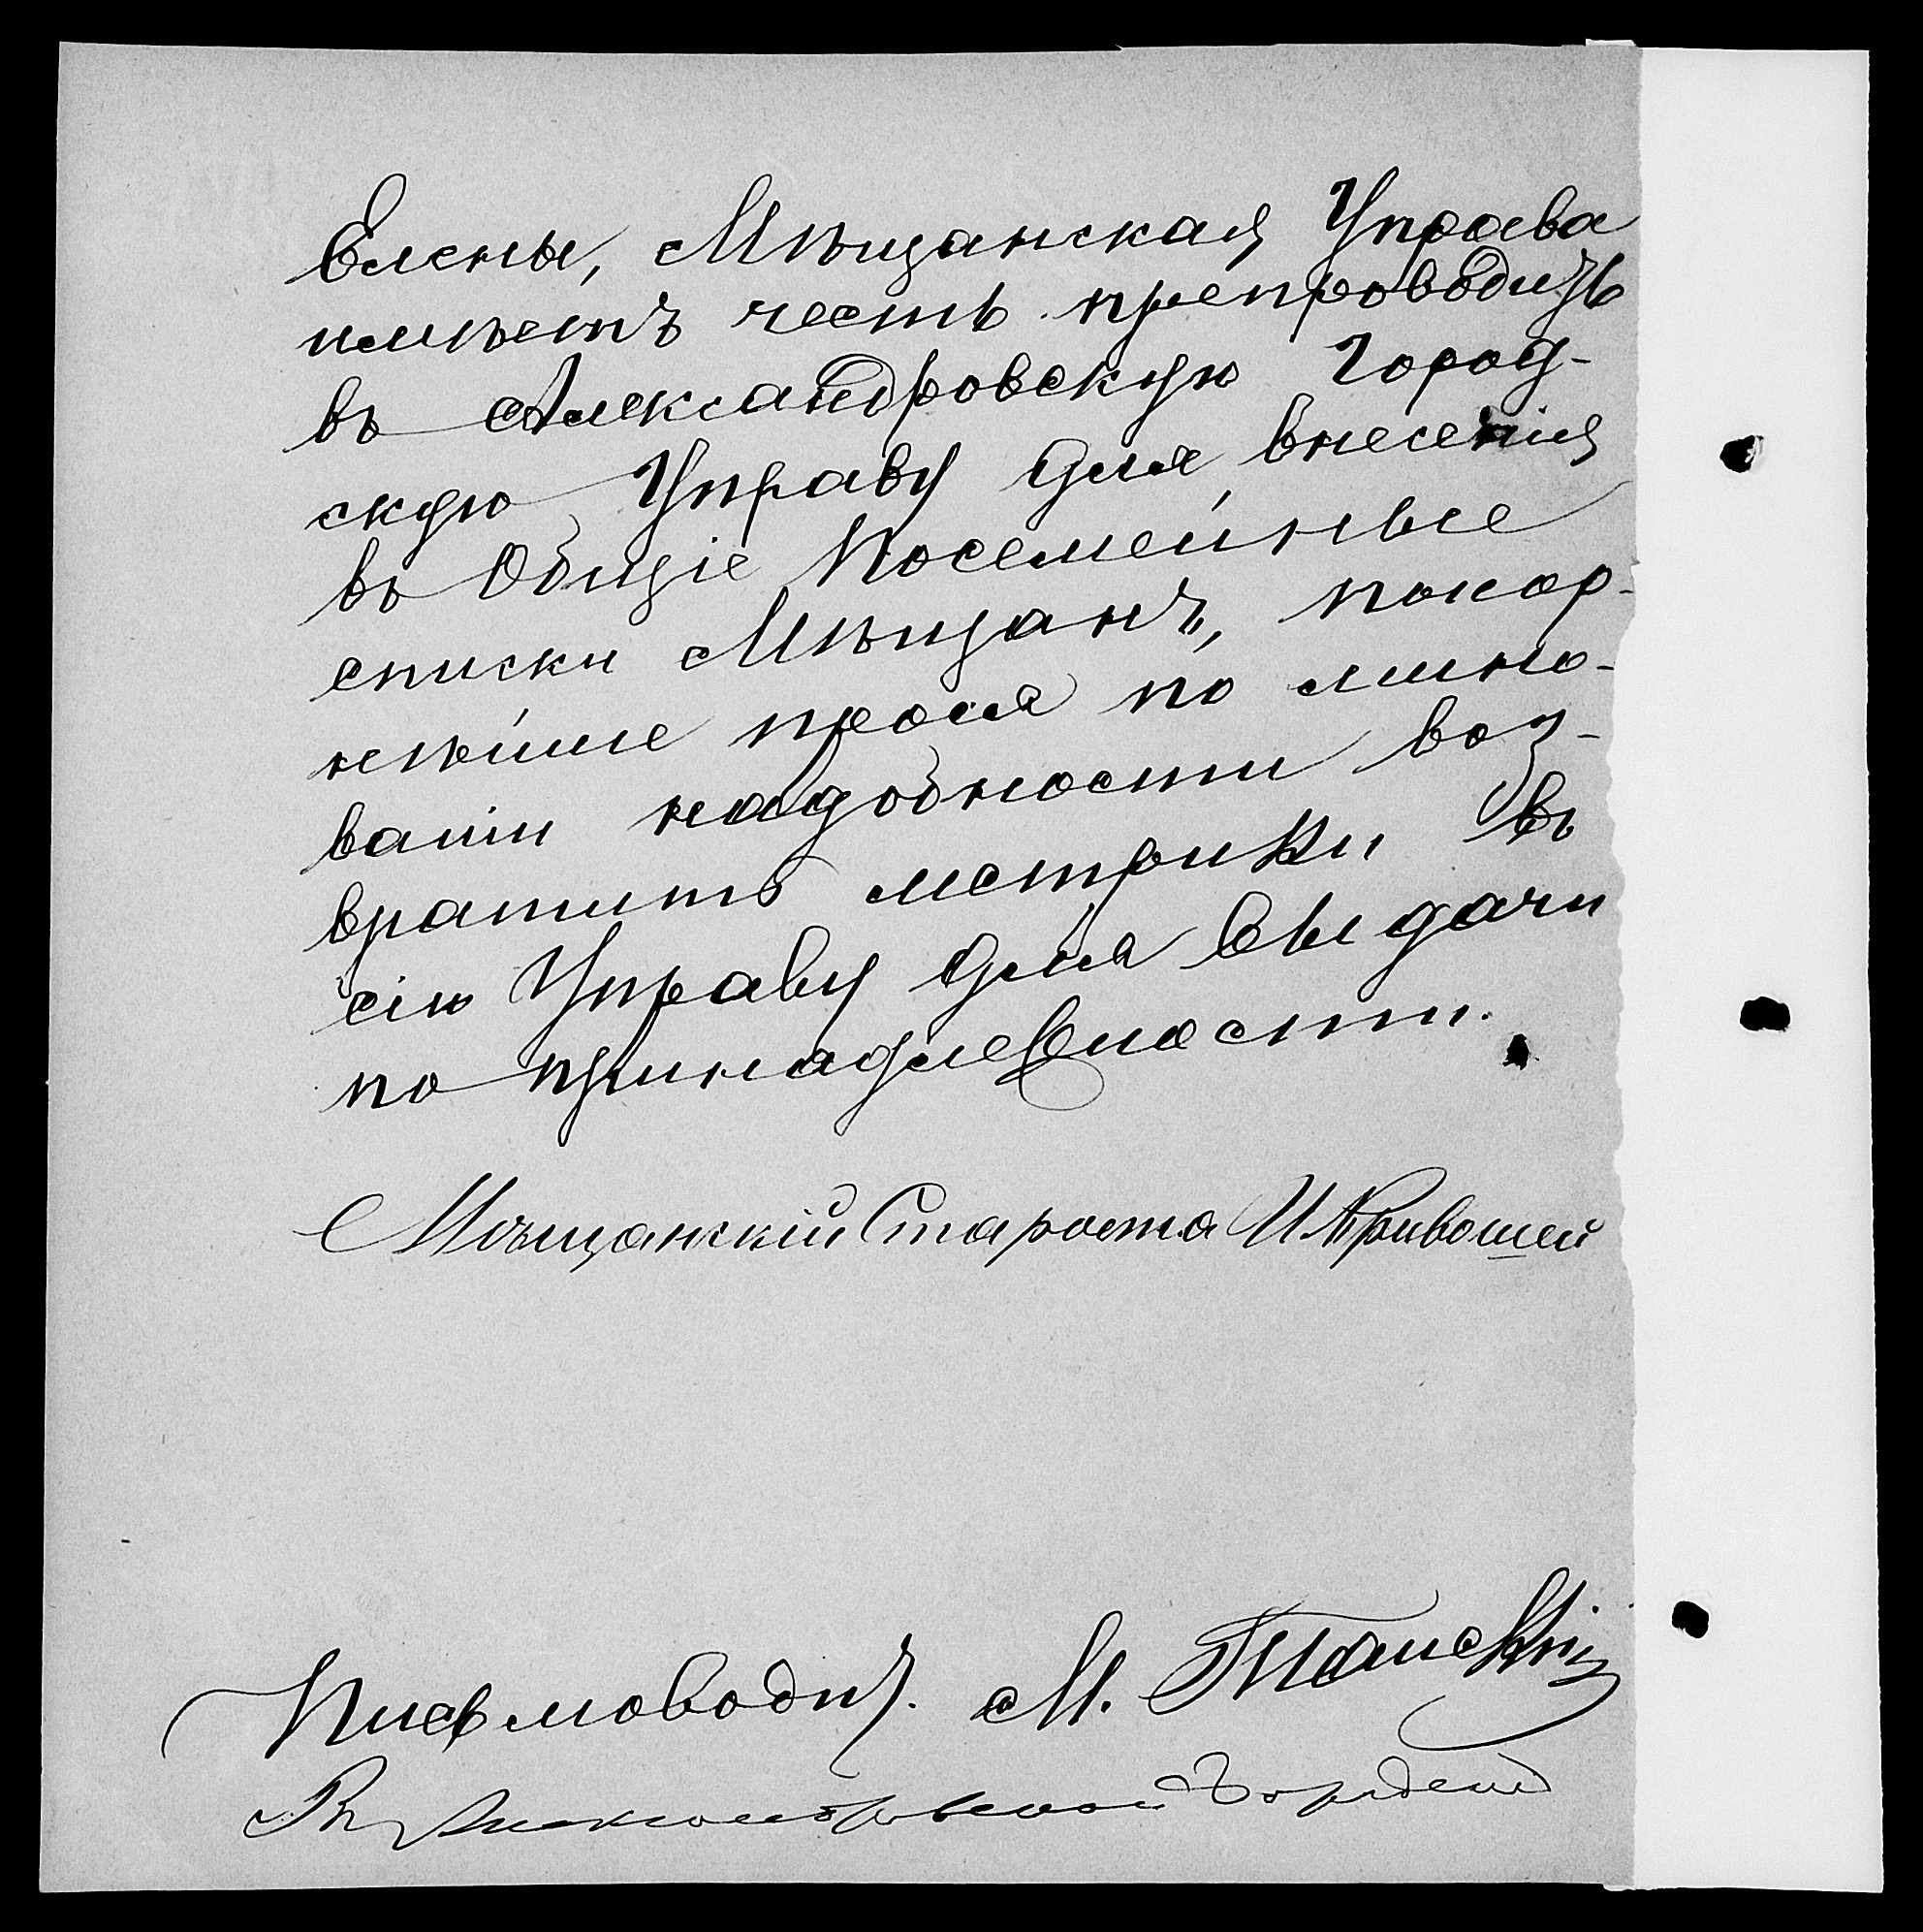 Елены, Мѣщанская Управа
имѣетъ честь препроводить
въ Александровскую Город-
скую Управу для внесенія
въ Общіе Посемейные
списки Мѣщанъ, покор-
нѣйше прося по мино-
ваніи надобности воз-
вратить метрики въ
сію Управу для выдачи
по принадлежности.
Мѣщанскій Староста И Кривошей
Письмоводит. М.